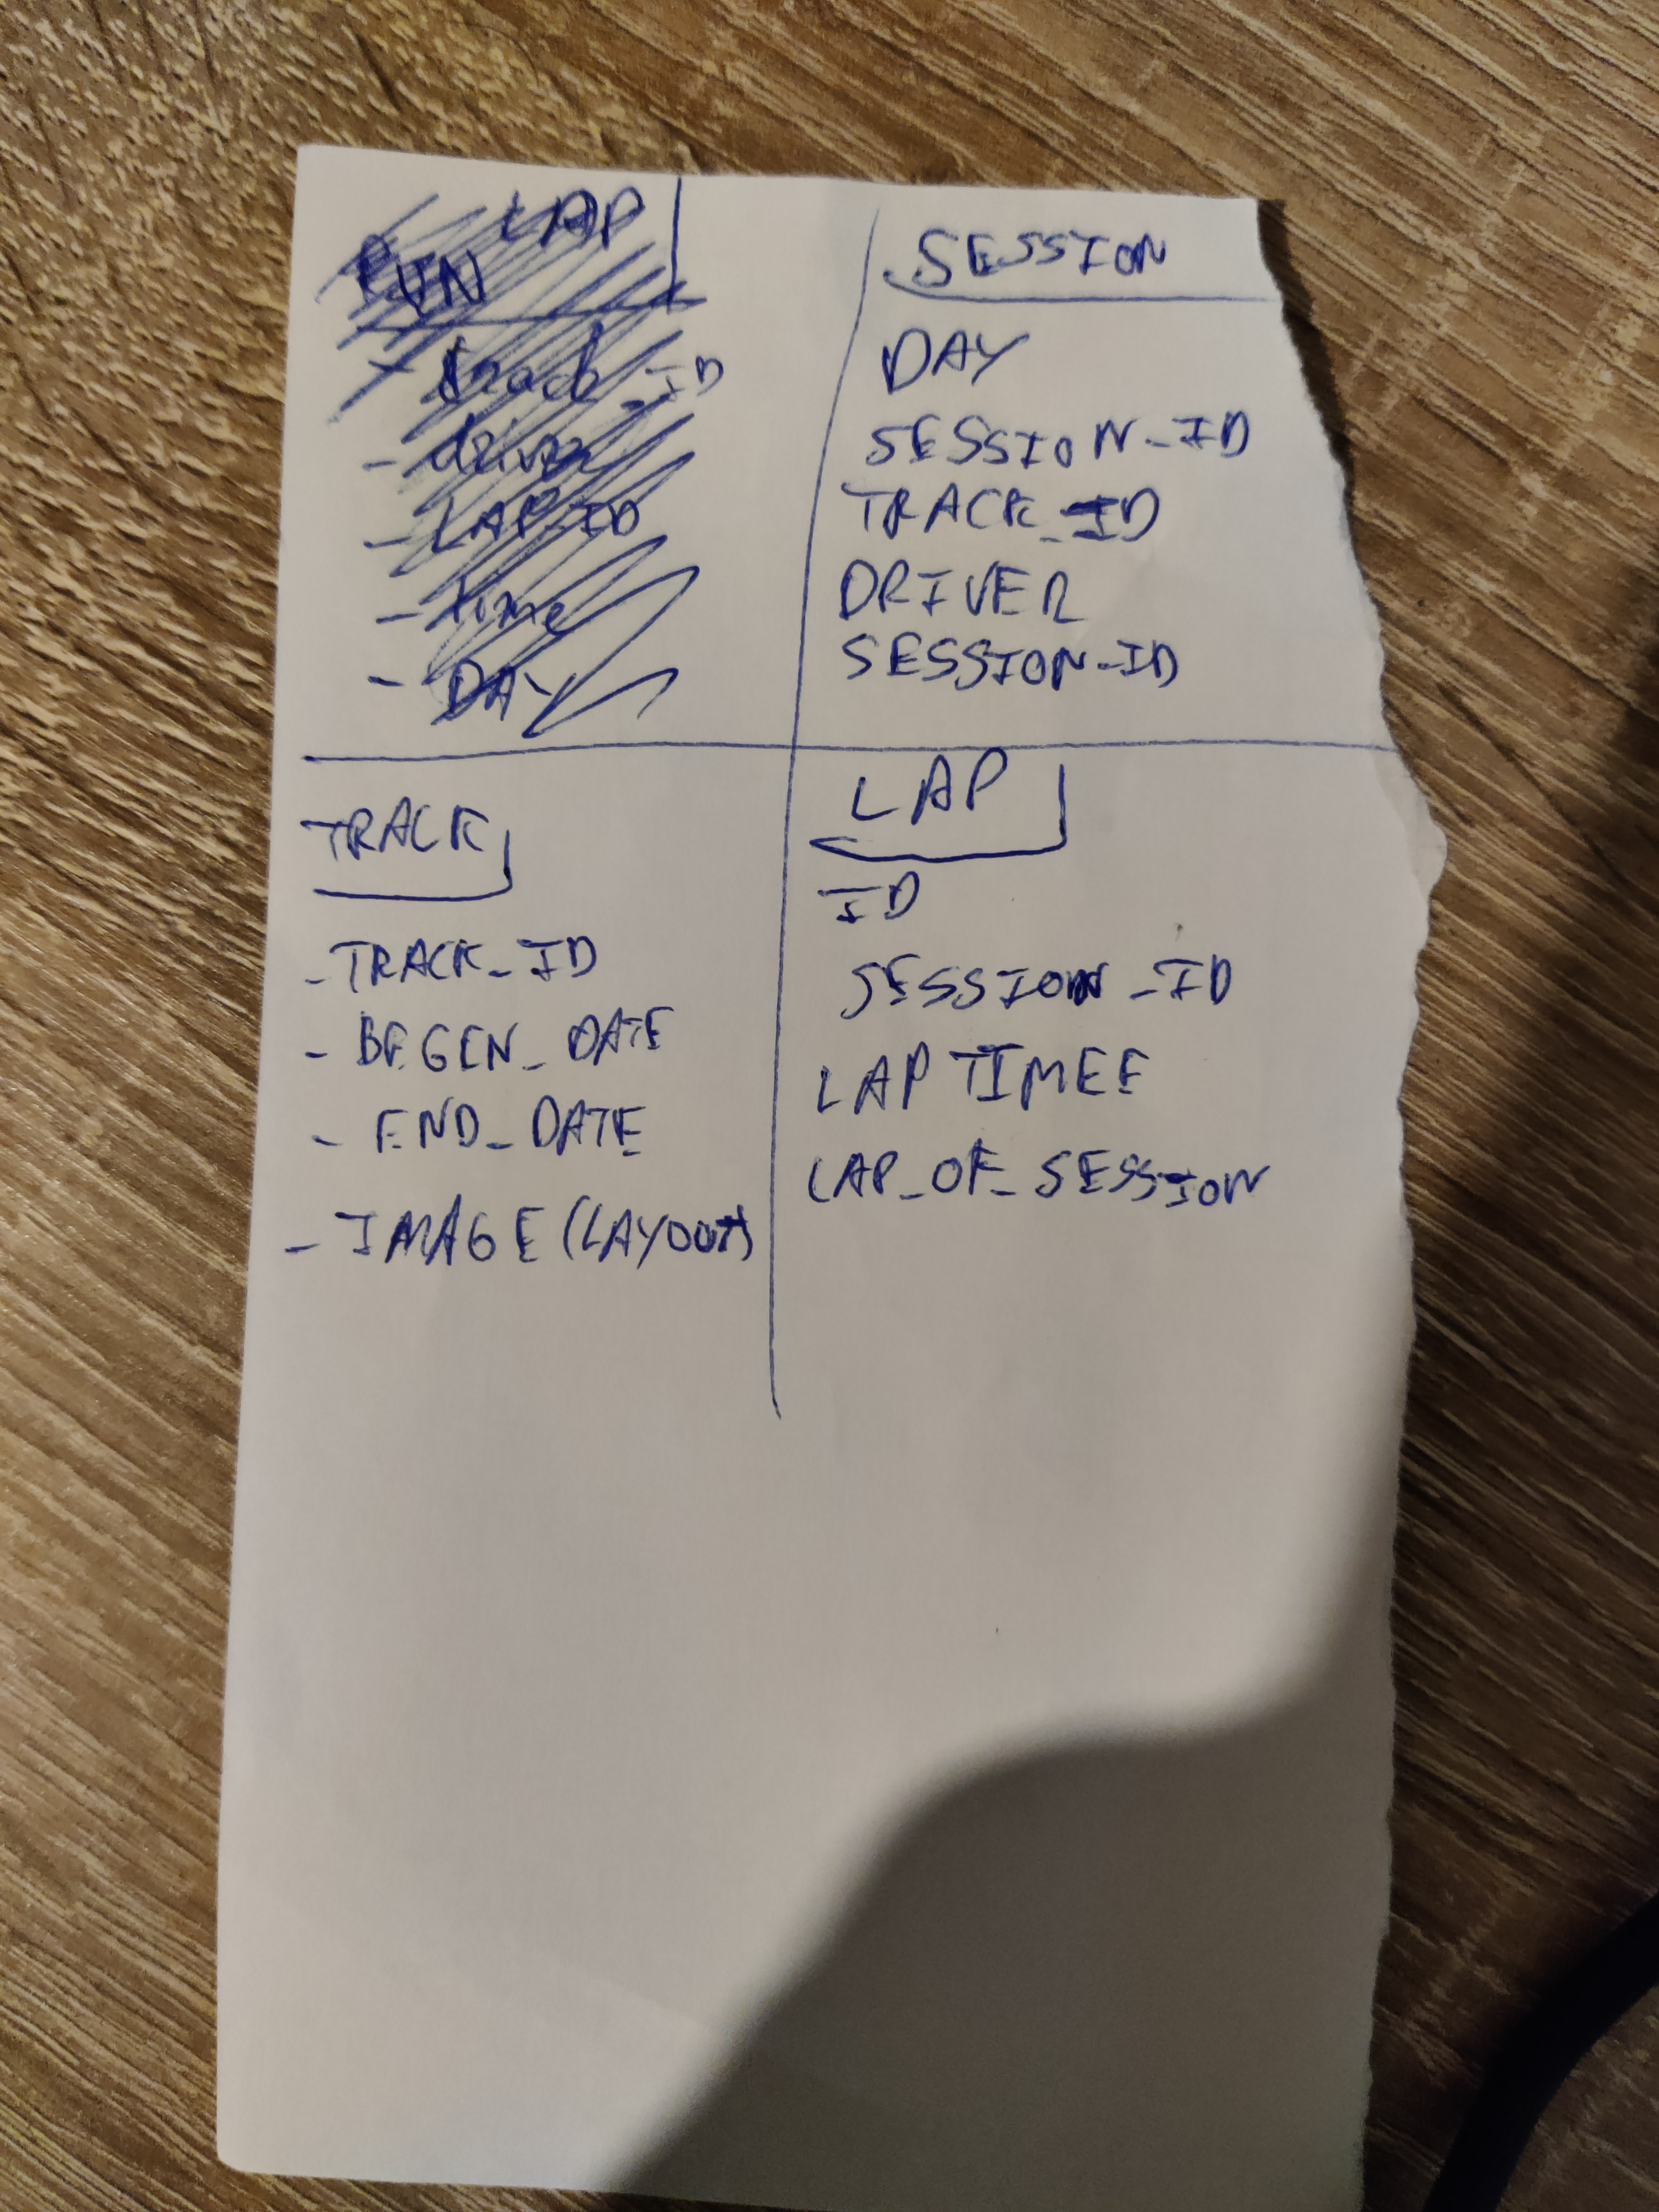 LAP
RUN
- track_ID
- driver
- LAP_ID
- time
- DAY
SESSION
DAY
SESSION_ID
TRACK_ID
DRIVER
SESSION-ID
TRACK
- TRACK_ID
- BEGEN_DATE
- END_DATE
- IMAGE (LAYOUT)
LAP
ID
SESSION_ID
LAP TIMEE
LAP_OF_SESSION